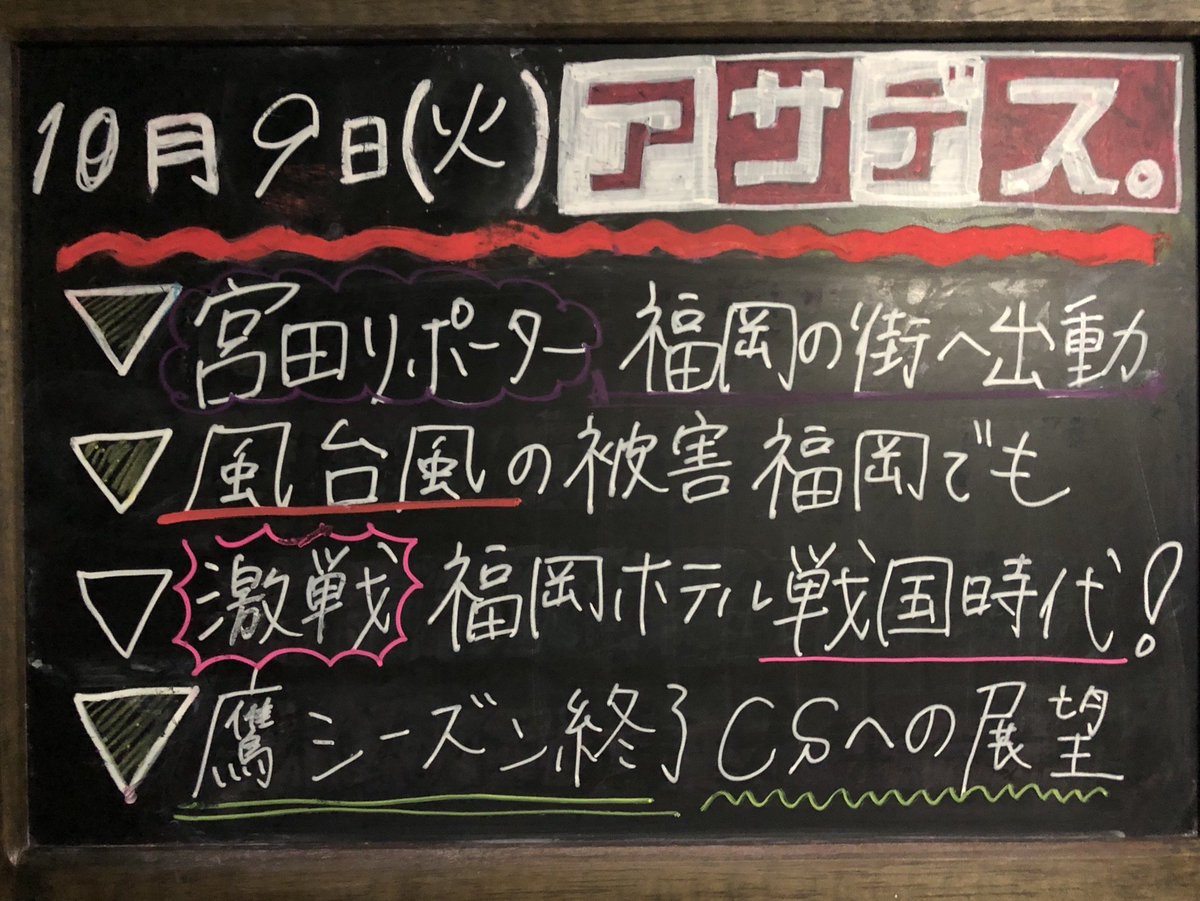 10月9日(火) アサデス。
▽宮田リポーター 福岡の街へ出動
▽風台風の被害 福岡でも
▽激戦 福岡ホテル戦国時代!
▽鷹シーズン終了 CSへの展望